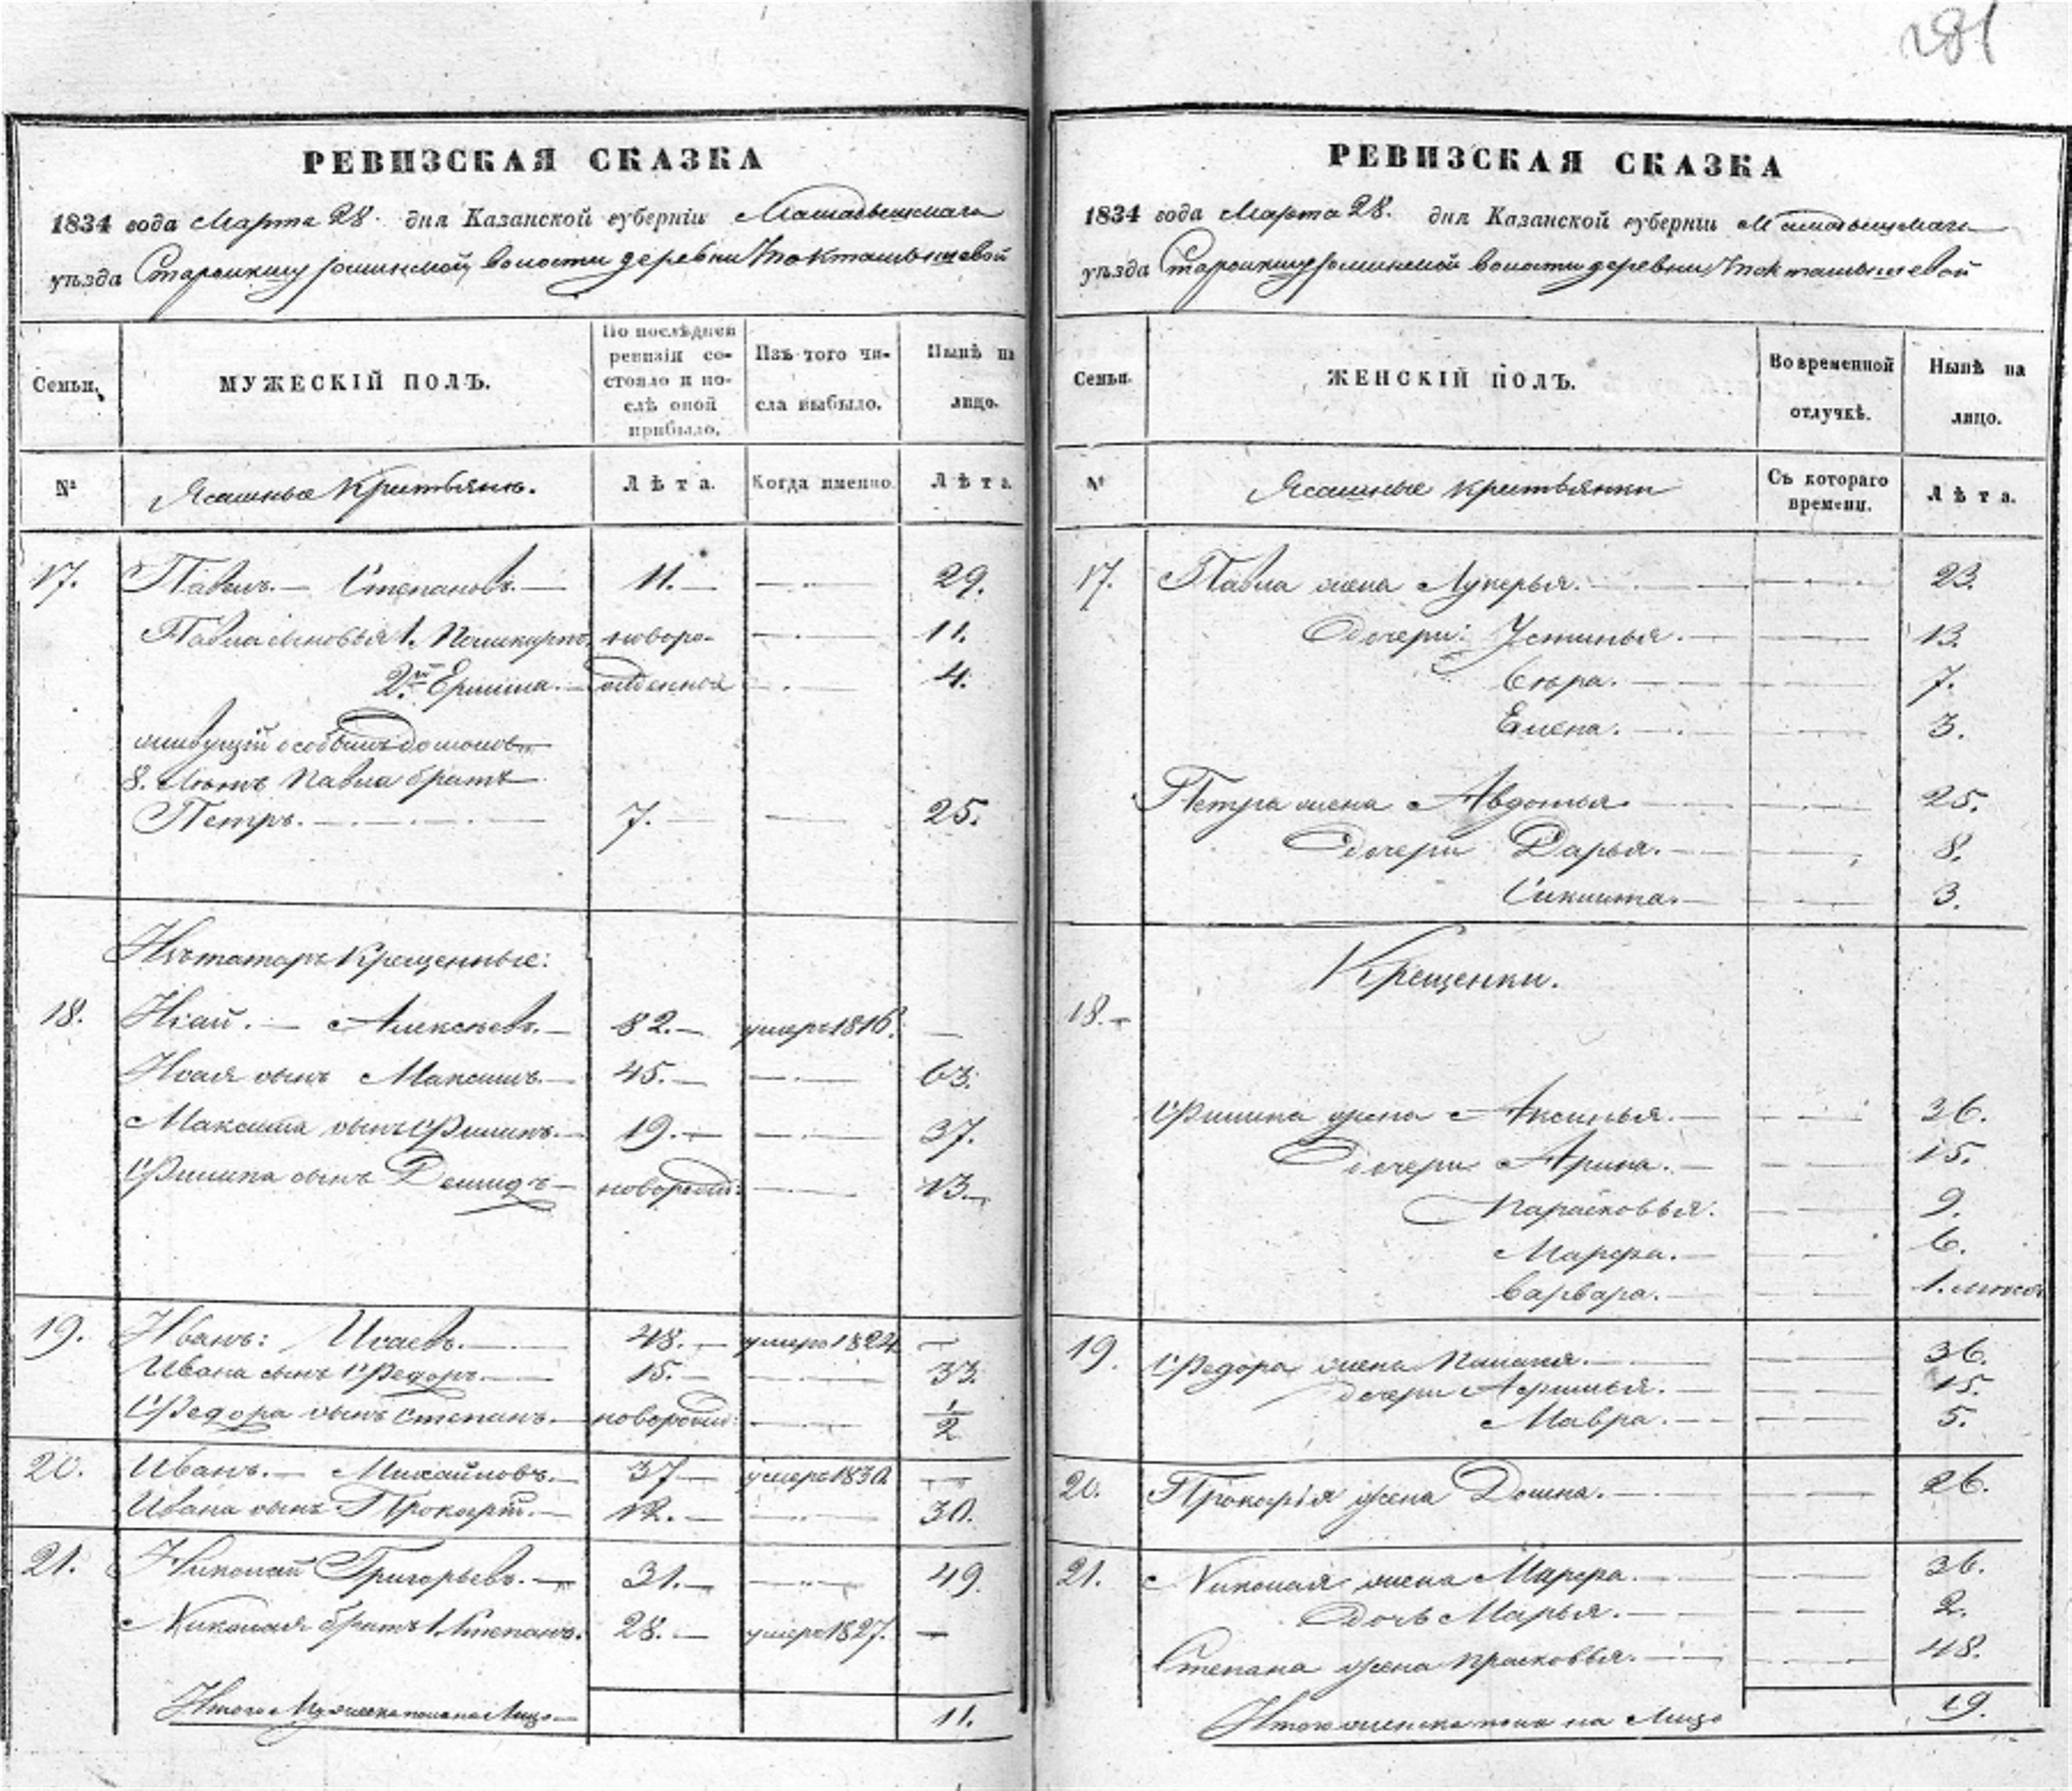 281
РЕВИЗСКАЯ СКАЗКА
1834 года Марта 28. дня Казанской губерніи Мамадышскаго
уѣзда волости деревни
Семьи.
МУЖЕСКІЙ ПОЛЪ.
По послѣдней ревизіи состояло и послѣ оной прибыло.
Изъ того числа выбыло.
Нынѣ на лицо.
№
Ясашные Крестьяне.
Лѣта.
Когда именно.
Лѣта.
17. Павелъ. — Степановъ. — 11. — — 29.
Павла сыновья 1. новоро- — 11.
2й — жденныя — 4.
живущій особымъ домомъ
8. лѣтъ Павла братъ
Петръ. — 7. — — 25.
Изъ татаръ Крещенные:
18. Исай. — Алексѣевъ. — 82. — умеръ 1816. —
Исая сынъ Максимъ. — 45. — — 63.
Максима сынъ Филипъ. — 19. — — 37.
Филипа сынъ Демидъ — новорожд: — 13. —
19. Иванъ: Исаевъ. — 48. — умеръ 1824 —
Ивана сынъ Федоръ. — 15. — — 33.
Федора сынъ Степанъ. — новорожд: — 1/2
20. Иванъ. — Михайловъ. — 37 — умеръ 1830 —
Ивана сынъ Прокофій. — 12. — — 30.
21. Николай Григорьевъ. — 31. — — 49.
Николая братъ 1. Степанъ. 28. — умеръ 1827. —
Итого Мужеска пола на Лицо — 11.
РЕВИЗСКАЯ СКАЗКА
1834 года Марта 28. дня Казанской губерніи Мамадышскаго
уѣзда волости деревни
Семьи.
ЖЕНСКІЙ ПОЛЪ.
Во временной отлучкѣ.
Нынѣ на лицо.
№
Ясашные крестьянки
Съ котораго времени.
Лѣта.
17. Павла жена Лукерья. — — 23.
Дочери: Устинья. — — 13.
— — 7.
Елена. — — 3.
Петра жена Авдотья — 25.
Дочери Дарья. — — 8.
— — 3.
Крещенки.
18. —
Филипа жена Аксинья. — — 36.
Дочери Арина. — — 15.
Парасковья. — 9.
Марфа. — — 6.
Варвара. — — 1.
19. Федора жена — — 36.
дочери — — 15.
Мавра. — — 5.
20. Прокофія жена Домна. — — 26.
21. Николая жена Марфа. — — 36.
Дочь Марья. — — 2.
Степана жена Прасковья. — — 48.
Итого женска пола на Лицо 19.